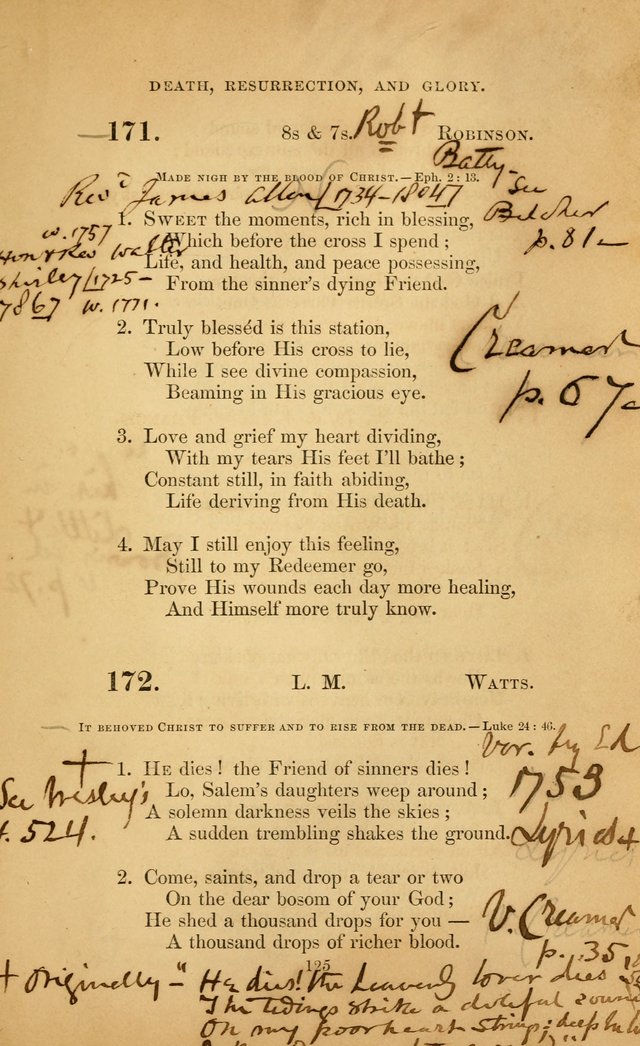 DEATH, RESURRECTION, AND GLORY.
171. 8s & 7s. Robt ROBINSON.
Batty—
MADE NIGH BY THE BLOOD OF CHRIST.—Eph. 2 : 13.
See
Rev. James Allen [1734-1804]
Belcher
p. 81—
1. SWEET the moments, rich in blessing,
w. 1757
Which before the cross I spend ;
Hon & Rev Walter
Life, and health, and peace possessing,
Shirley [1725-
From the sinner's dying Friend.
w. 1771.
2. Truly blesséd is this station,
Low before His cross to lie,
Creamer
While I see divine compassion,
Beaming in His gracious eye.
p. 67
3. Love and grief my heart dividing,
With my tears His feet I'll bathe ;
Constant still, in faith abiding,
Life deriving from His death.
4. May I still enjoy this feeling,
Still to my Redeemer go,
Prove His wounds each day more healing,
And Himself more truly know.
172. L. M. WATTS.
IT BEHOVED CHRIST TO SUFFER AND TO RISE FROM THE DEAD.—Luke 24 : 46.
Vor. by Ed
1753
Lyrics +
1. HE dies ! the Friend of sinners dies !
See Wesley's
Lo, Salem's daughters weep around ;
524.
A solemn darkness veils the skies ;
A sudden trembling shakes the ground.
2. Come, saints, and drop a tear or two
On the dear bosom of your God ;
V. Creamer
He shed a thousand drops for you —
p. 35,
A thousand drops of richer blood.
125
+ Originally — "He dies! the heavenly lover dies
The tidings strike a doleful sound
On my poor heart strings: deep he